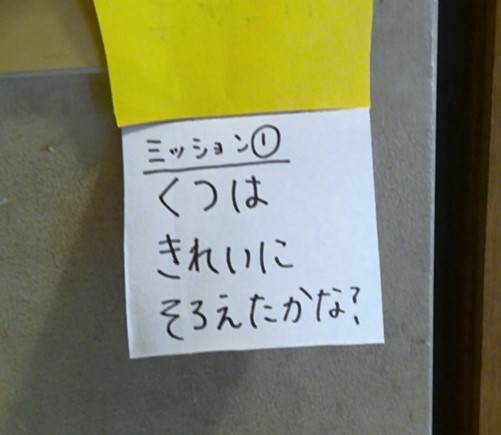 ミッション①
くつは
きれいに
そろえたかな?